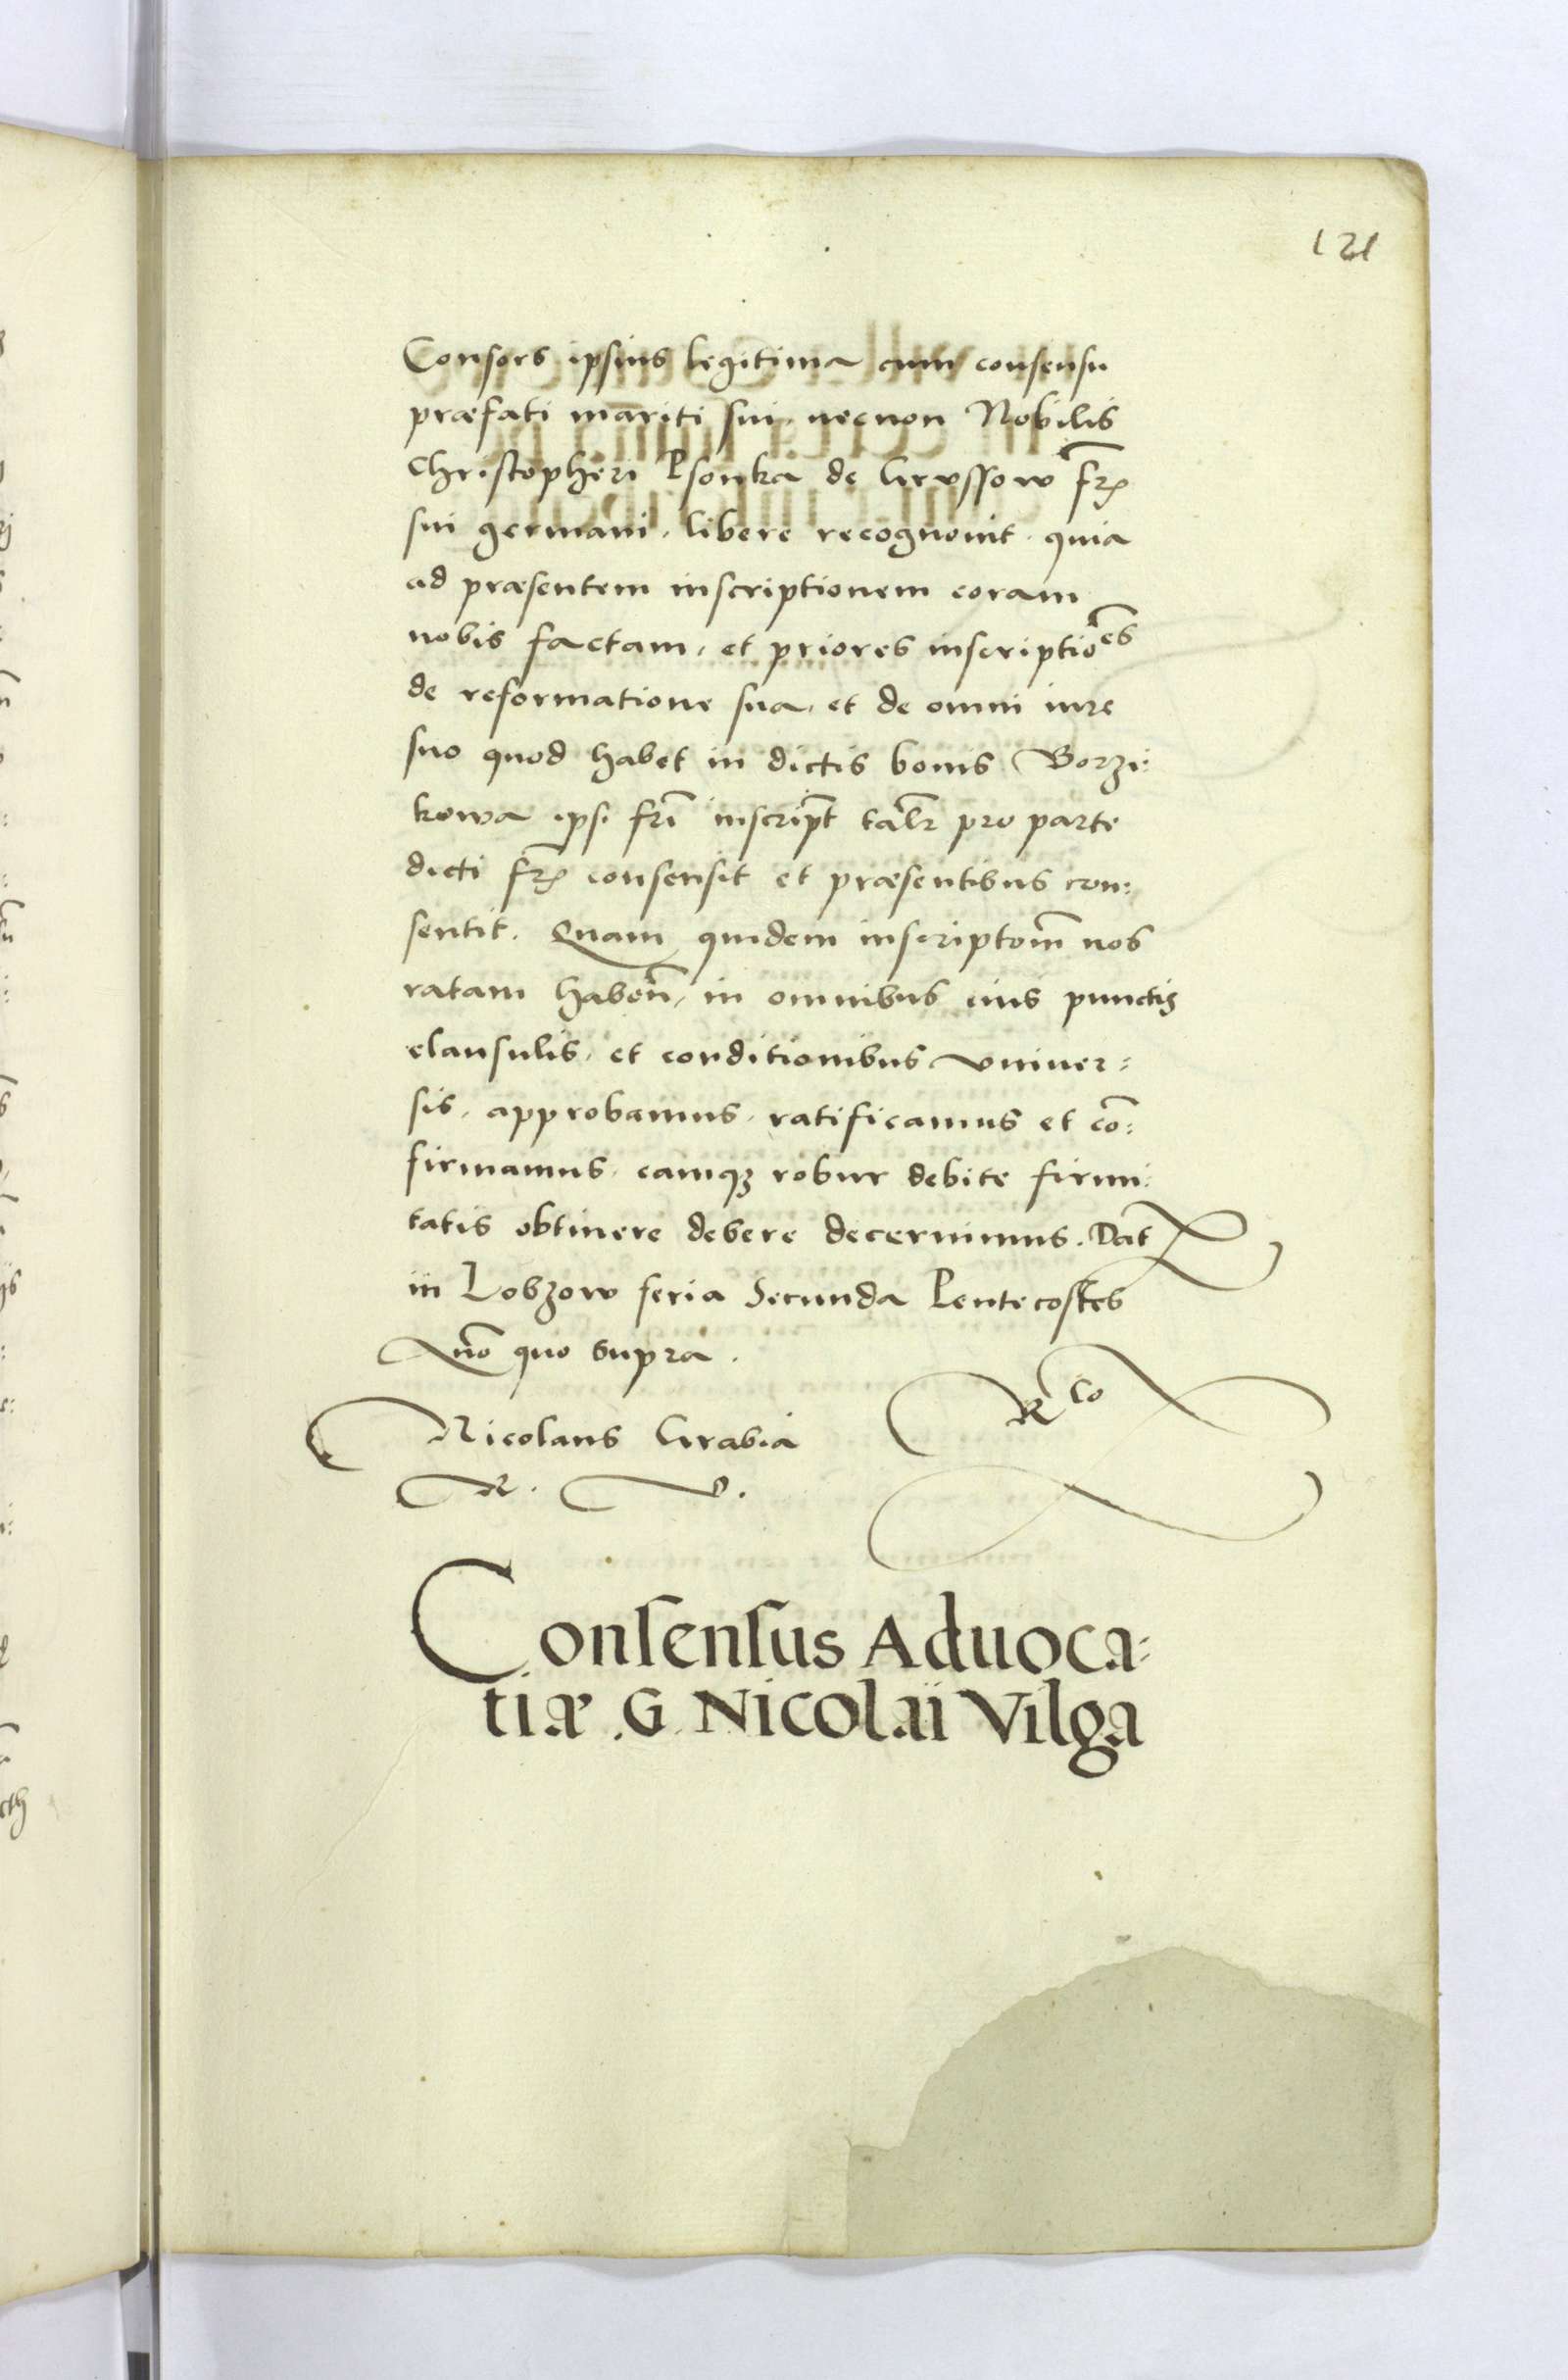 121
Consors ipsius legitima cum consensu
præfati mariti sui, necnon Nobilis
Christopheri Psonka de Grvssow fr̃is
sui germani, libere recognouit, quia
ad præsentem inscriptionem coram
nobis factam, et priores inscriptio͠es
de reformatione sua, et de omni iure
suo quod habet in dictis bonis Borzi:
kowa ipsi fr̃i inscrip̃t tal̃r pro parte
dicti fr̃is consensit et præsentibus con:
sentit. Quam quidem inscriptom̃ nos
ratam haben̄, in omnibus eius punctis
clausulis, et conditionibus vniuer=
sis, approbamus, ratificamus et cō:
firmamus, eamqꝫ robur debite firmi:
tatis obtinere debere decernimus. Dat̃
in Lobzow feria Secunda Pentecostes
Año quo supra.
Nicolaus Grabia
R. V.
R lo
Consensus Aduoca=
tiæ .G. Nicolaï Vilga